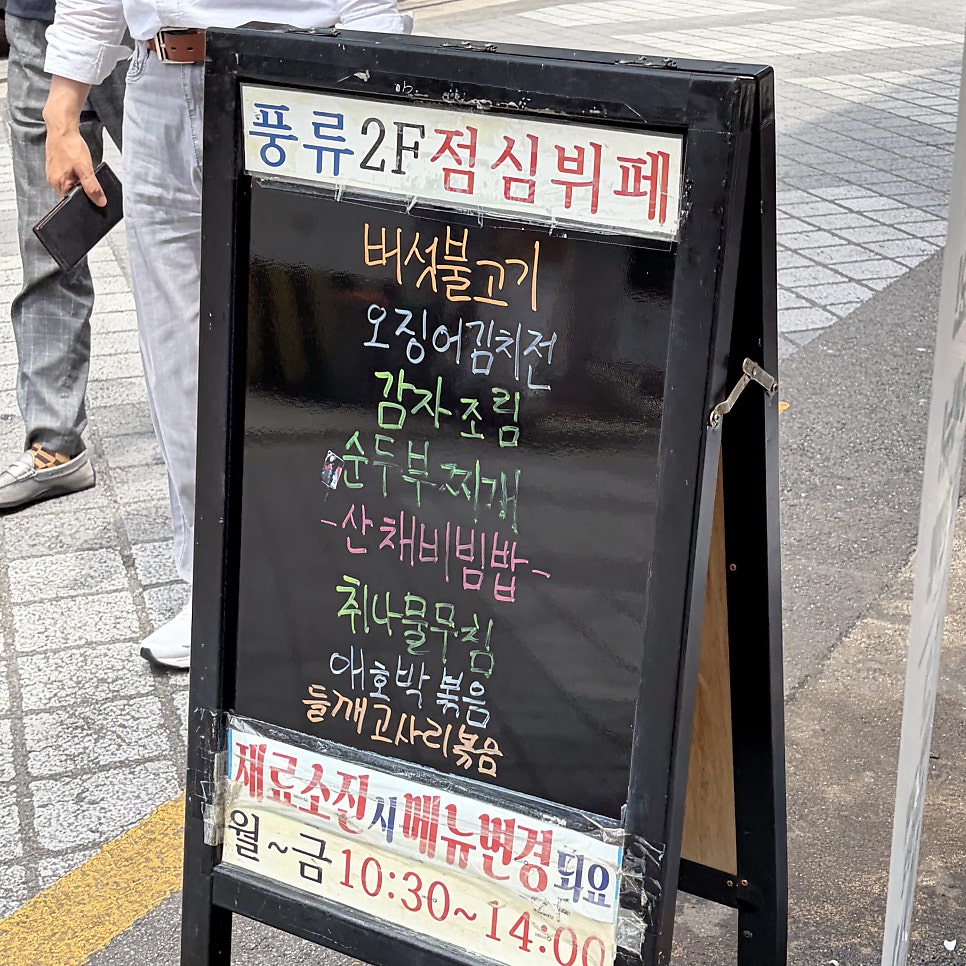 풍류 2F 점심뷔페
버섯불고기
오징어김치전
감자조림
순두부찌개
-산채비빔밥-
취나물무침
애호박볶음
들깨고사리볶음
재료소진시 메뉴변경돼요
월~금 10:30~14:00